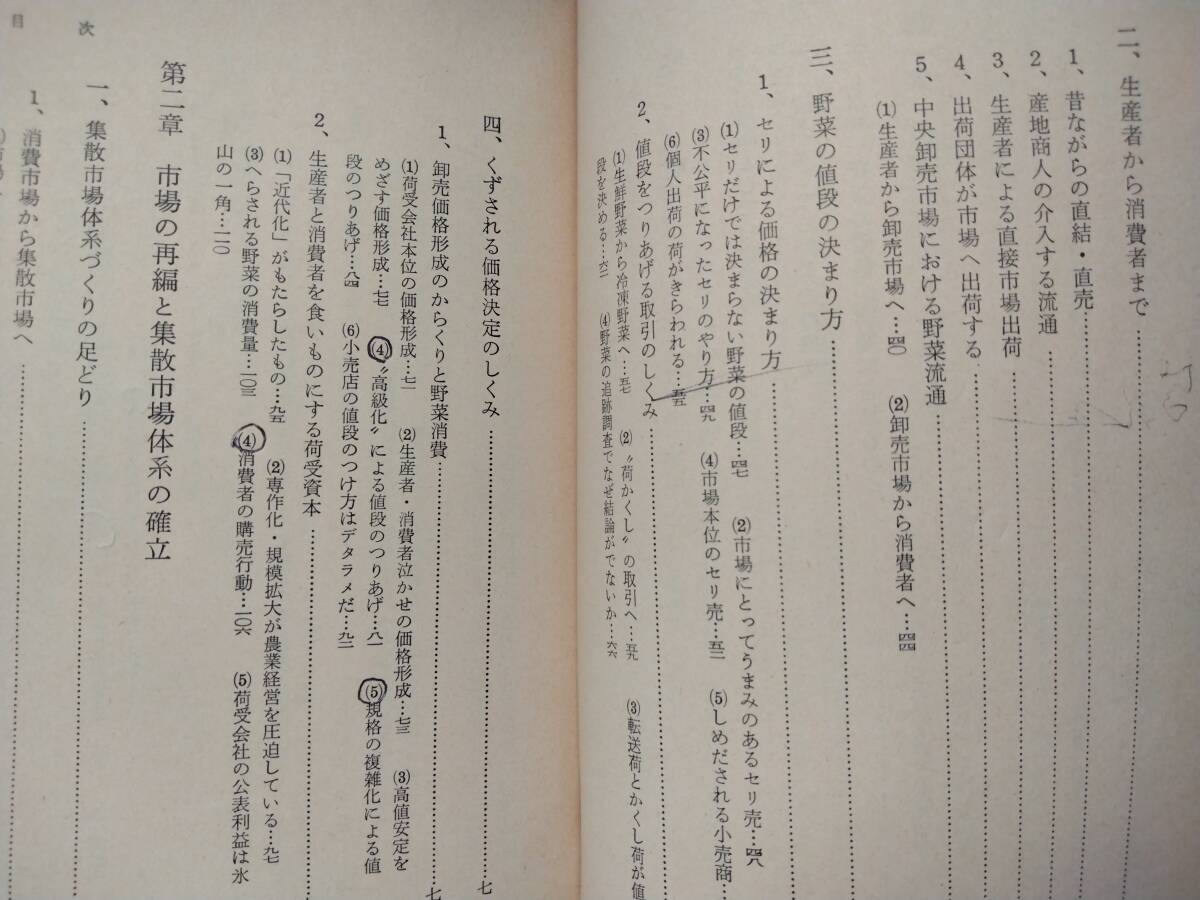 二、生産者から消費者まで
1、昔ながらの直結・直売
2、産地商人の介入する流通
3、生産者による直接市場出荷
4、出荷団体が市場へ出荷する
5、中央卸売市場における野菜流通
(1)生産者から卸売市場へ…四〇　(2)卸売市場から消費者へ…四四
三、野菜の値段の決まり方
1、セリによる価格の決まり方
(1)セリだけでは決まらない野菜の値段…四七　(2)市場にとってうまみのあるセリ売…四八
(3)不公平になったセリのやり方…四九　(4)市場本位のセリ売…五二　(5)しめだされる小売商
(6)個人出荷の荷がきらわれる…五五
2、値段をつりあげる取引のしくみ
(1)生鮮野菜から冷凍野菜へ…五七　(2)〝荷かくし〟の取引へ…五九　(3)転送荷とかくし荷が値
段を決める…六二　(4)野菜の追跡調査でなぜ結論がでないか…六六
四、くずされる価格決定のしくみ…七
1、卸売価格形成のからくりと野菜消費…七
(1)荷受会社本位の価格形成…七一　(2)生産者・消費者泣かせの価格形成…七三　(3)高値安定を
めざす価格形成…七三　(4)〝高級化〟による値段のつりあげ…八一　(5)規格の複雑化による値
段のつりあげ…八四　(6)小売店の値段のつけ方はデタラメだ…九二
2、生産者と消費者を食いものにする荷受資本
(1)「近代化」がもたらしたもの…九五　(2)専作化・規模拡大が農業経営を圧迫している…九七
(3)へらされる野菜の消費量…一〇三　(4)消費者の購売行動…一〇六　(5)荷受会社の公表利益は氷
山の一角…一一〇
第二章　市場の再編と集散市場体系の確立
一、集散市場体系づくりの足どり
1、消費市場から集散市場へ
目次